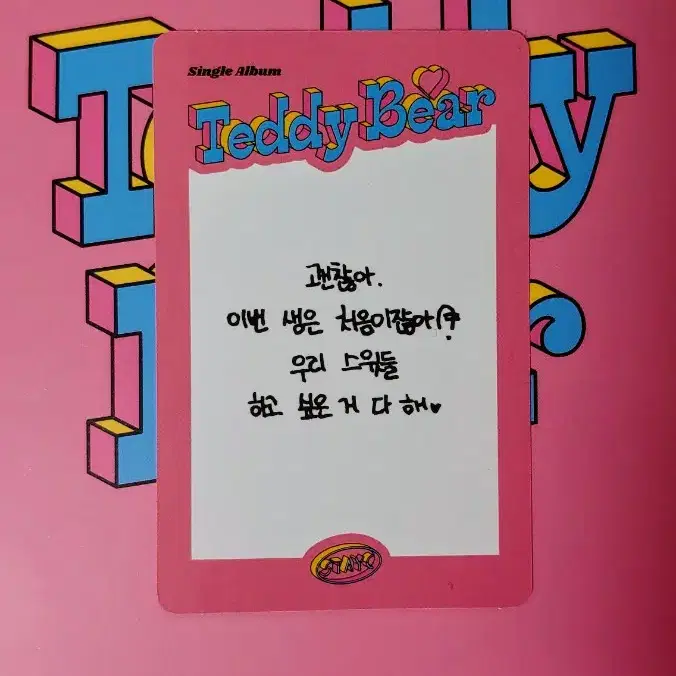 Single Album
Teddy Bear
괜찮아.
이번 생은 처음이잖아?
우리 스윗들
하고 싶은 거 다 해♥
STAYC